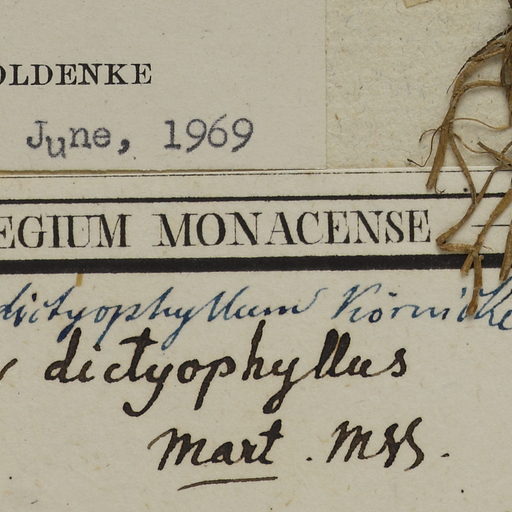 OLDENKE
June, 1969
EGIUM MONACENSE
dictyophyllum Körnicke
dictyophyllus
Mart. Mss.